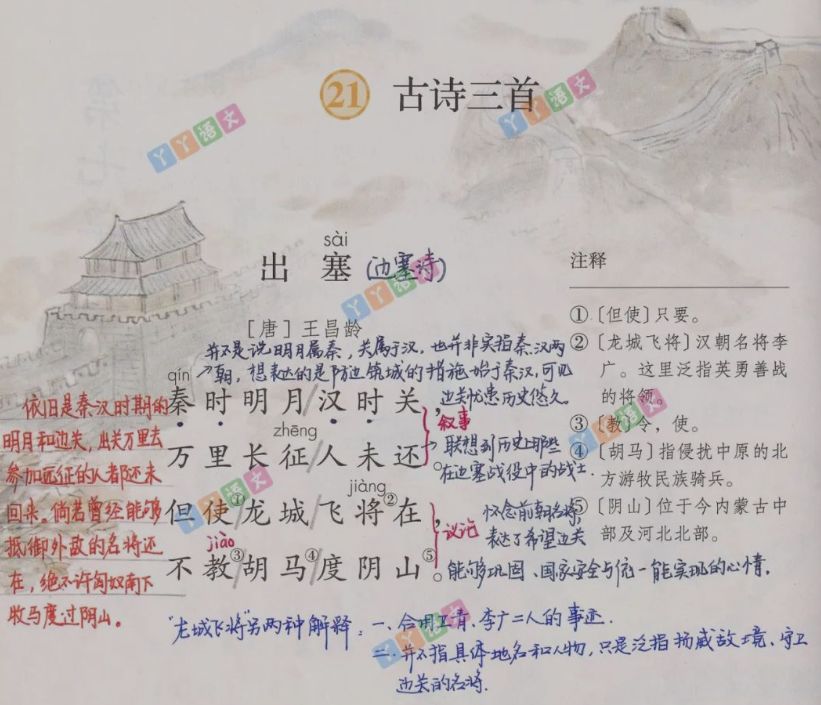 21 古诗三首
sài
出塞(边塞诗)
[唐]王昌龄
并不是说明月属秦,关属于汉,也并非实指秦、汉两
朝,想表达的是防边筑城的措施始于秦汉,可见
边关忧患历史悠久
qín
秦时明月/汉时关,
叙事
zhēng
万里长征/人未还。
联想到历史上那些
在边塞战役中的战士.
jiàng
但使①龙城/飞将②在,
议论
怀念前朝名将,
表达了希望边关
jiào
不教③胡马④度阴山⑤。
能够巩固、国家安全与统一能实现的心情.
"龙城飞将"另两种解释:一、合用卫青、李广二人的事迹.
二、并不指具体地名和人物,只是泛指扬威敌境、守卫
边关的名将.
依旧是秦汉时期的
明月和边关,出关万里去
参加远征的人都还未
回来。倘若曾经能够
抵御外敌的名将还
在,绝不许匈奴南下
牧马度过阴山。
注释
①〔但使〕只要。
②〔龙城飞将〕汉朝名将李
广。这里泛指英勇善战
的将领。
③〔教〕令,使。
④〔胡马〕指侵扰中原的北
方游牧民族骑兵。
⑤〔阴山〕位于今内蒙古中
部及河北北部。
丫丫语文
丫丫语文
丫丫语文
丫丫语文
丫丫语文
丫丫语文